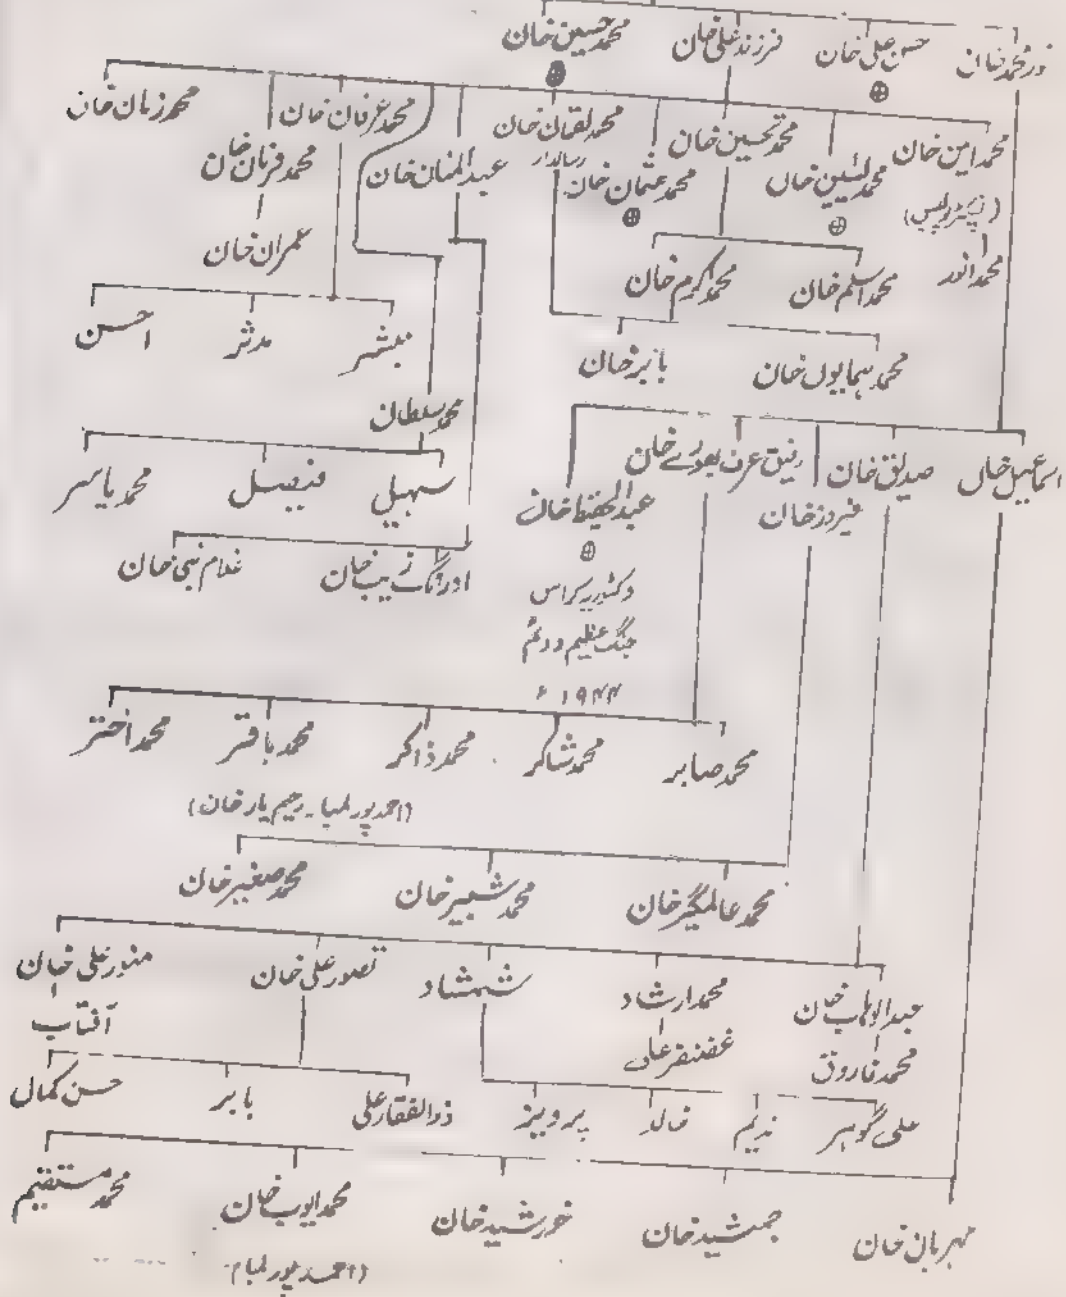 نور محمد خان
حسن علی خان
فرزند علی خان
محمد حسین خان
محمد امین خان
محمد یٰسین خاں
محمد تحسین خان
محمد عثمان خان
محمد لقمان خان
رسالدار
عبدالمنان خان
محمد عرفان خان
محمد فرمان خان
محمد زمان خان
محمد انور
محمد اسلم خان
محمد اکرم خان
عمران خان
محمد ہمایوں خان
بابر خان
مبشر
مدثر
احسن
محمد سلطان
اسماعیل خاں
صدیق خان
فیروز خان
رفیق عرف بھورے خان
عبدالحفیظ خان
وکٹوریہ کراس
جنگ عظیم دوئم
۱۹۴۴ ء
سہیل
فیصل
محمد یاسر
اورنگ زیب خان
غلام نبی خان
محمد صابر
محمد شاکر
محمد ذاکر
محمد باقر
محمد اختر
(احمد پور لمبا ۔ رحیم یار خان)
محمد عالمگیر خان
محمد شبیر خان
محمد صغیر خان
عبدالوہاب خان
محمد ارشاد
شمشاد
تصور علی خان
منور علی خان
محمد فاروق
غضنفر علی
آفتاب
علی گوہر
ندیم
خالد
پرویز
ذوالفقار علی
بابر
حسن کمال
مہربان خان
جمشید خان
خورشید خان
محمد ایوب خان
محمد مستقیم
(احمد پور لمبا)